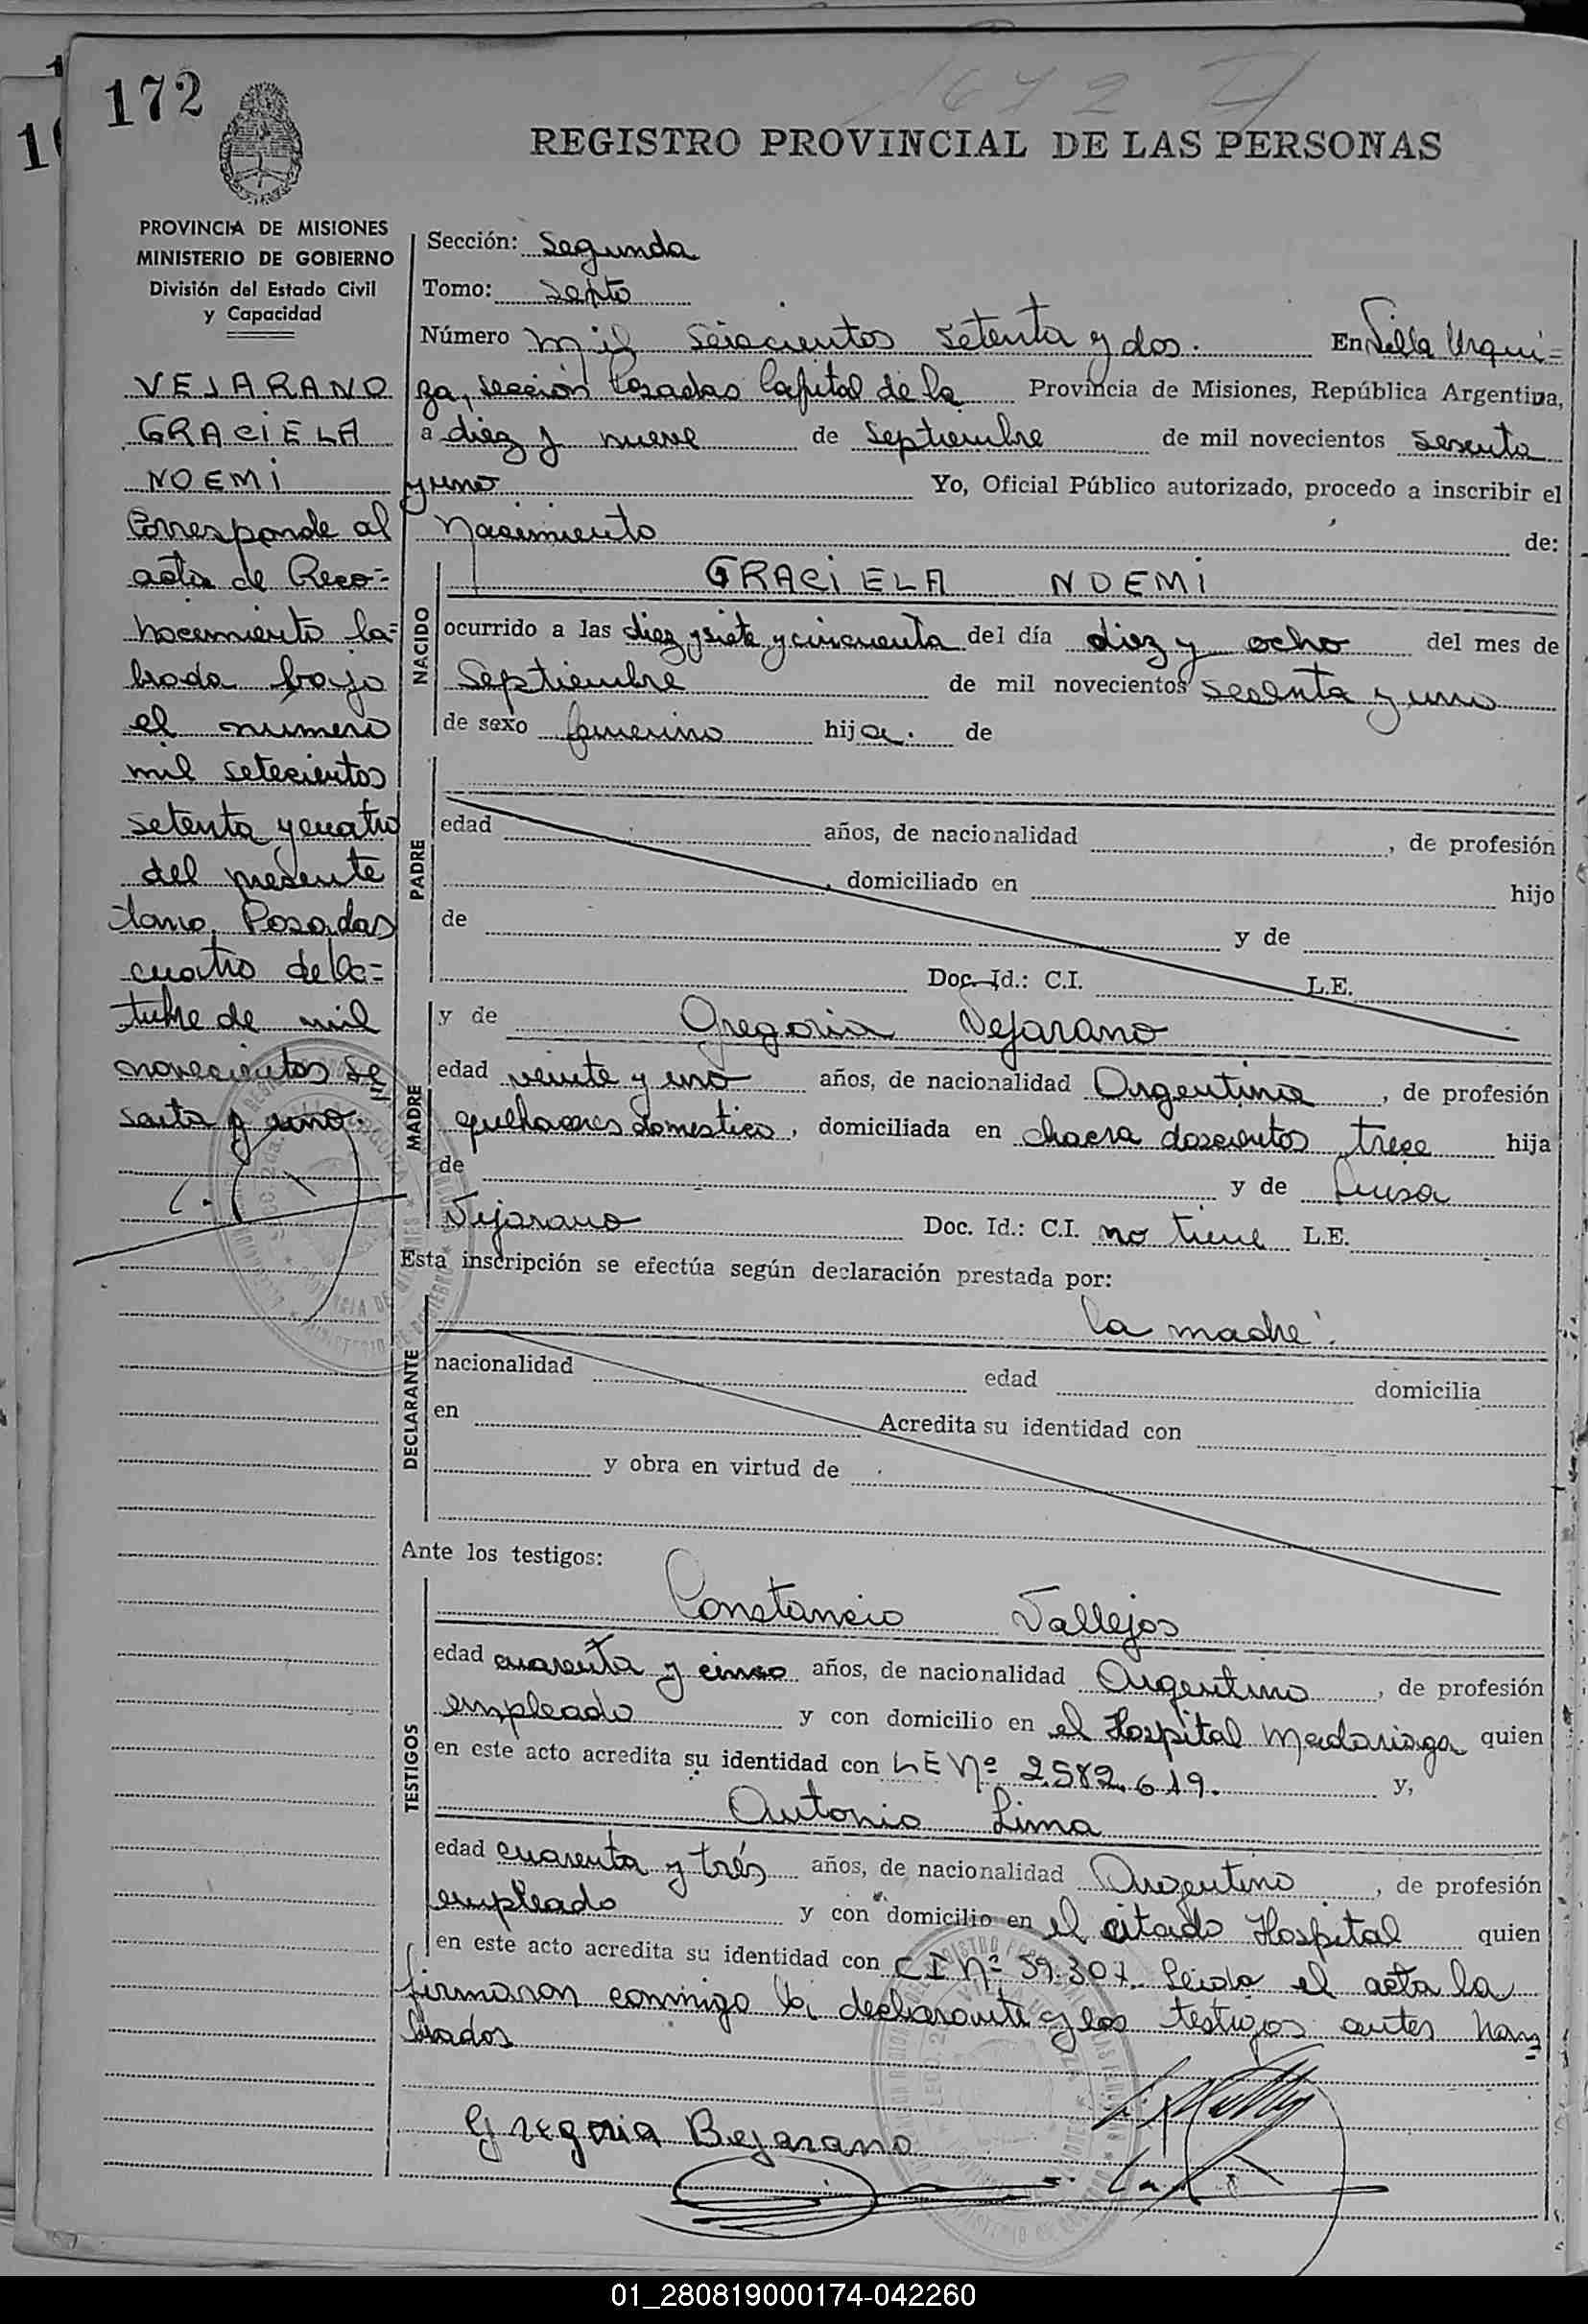 172
1672 I
REGISTRO PROVINCIAL DE LAS PERSONAS
PROVINCIA DE MISIONES
MINISTERIO DE GOBIERNO
División del Estado Civil
y Capacidad
VEJARANO
GRACIELA
NOEMI
Corresponde al
acta de Reco=
nocimiento la=
brada bajo
el numero
mil setecientos
setenta y cuatro
del presente
tomo. Posadas
cuatro de Oc=
tubre de mil
novecientos se
senta y uno.
Sección: Segunda
Tomo: Septo
Número mil seiscientos setenta y dos. En Villa Urqui=
za, sección Posadas Capital de la Provincia de Misiones, República Argentina,
a diez y nueve de Septiembre de mil novecientos sesenta
y uno Yo, Oficial Público autorizado, procedo a inscribir el
Nacimiento de:
NACIDO
GRACIELA NOEMI
ocurrido a las diez y siete y cincuenta del día diez y ocho del mes de
Septiembre de mil novecientos sesenta y uno
de sexo femenino hija. de
PADRE
edad años, de nacionalidad , de profesión
, domiciliado en hijo
de y de
Doc. Id.: C.I. L.E.
MADRE
y de Gregoria Vejarano
edad veinte y uno años, de nacionalidad Argentina , de profesión
quehaceres domestico, domiciliada en chacra doscientos trece hija
de y de Luisa
Vejarano Doc. Id.: C.I. no tiene L.E.
Esta inscripción se efectúa según declaración prestada por:
DECLARANTE
la madre.
nacionalidad edad domicilia
en Acredita su identidad con
y obra en virtud de
Ante los testigos:
TESTIGOS
Constancio Vallejos
edad cuarenta y cinco años, de nacionalidad Argentino , de profesión
empleado y con domicilio en el Hospital Madariaga quien
en este acto acredita su identidad con LE Nº 2.582.619. y,
Antonio Lima
edad cuarenta y trés años, de nacionalidad Argentino , de profesión
empleado y con domicilio en el citado Hospital quien
en este acto acredita su identidad con C I Nº 59.307. Leida el acta la
firmaron conmigo la declarante y los testigos antes nom=
brados
Gregoria Bejarano
01_280819000174-042260